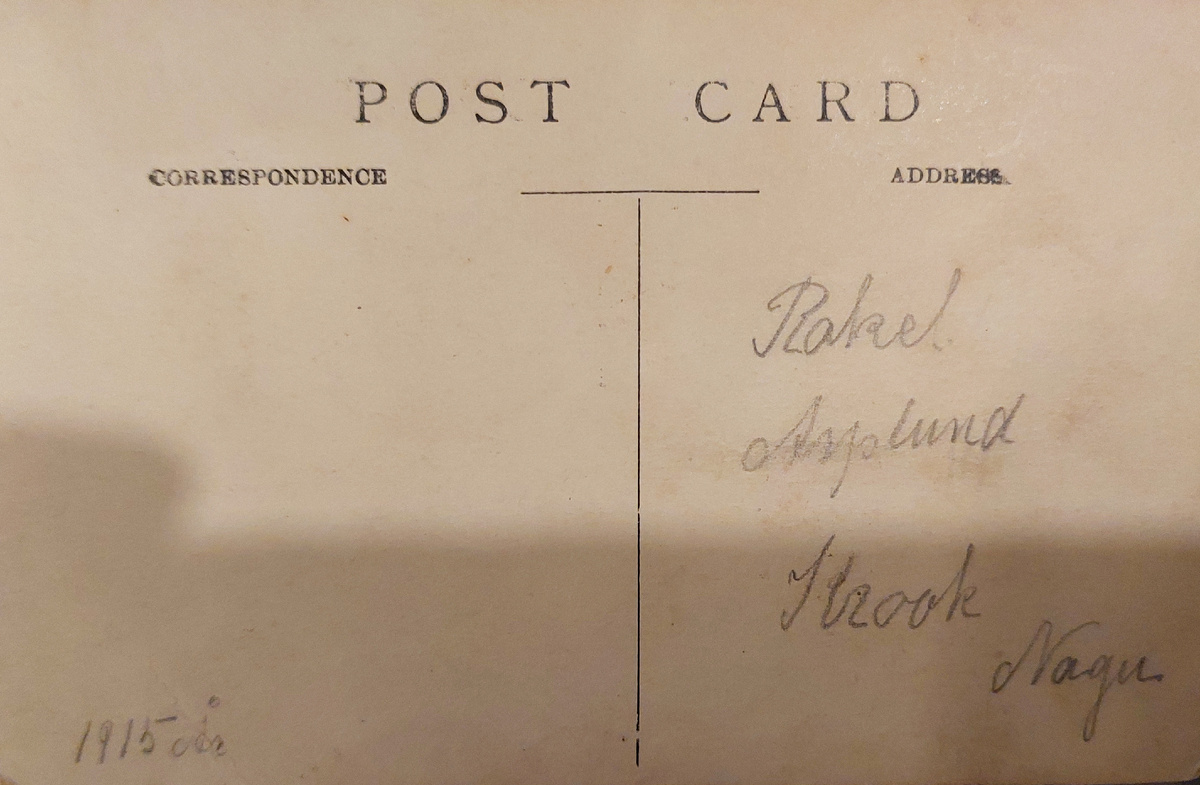 POST CARD
CORRESPONDENCE
ADDRESS
Rakel
Asplund
Krook
Nagu
1915 år